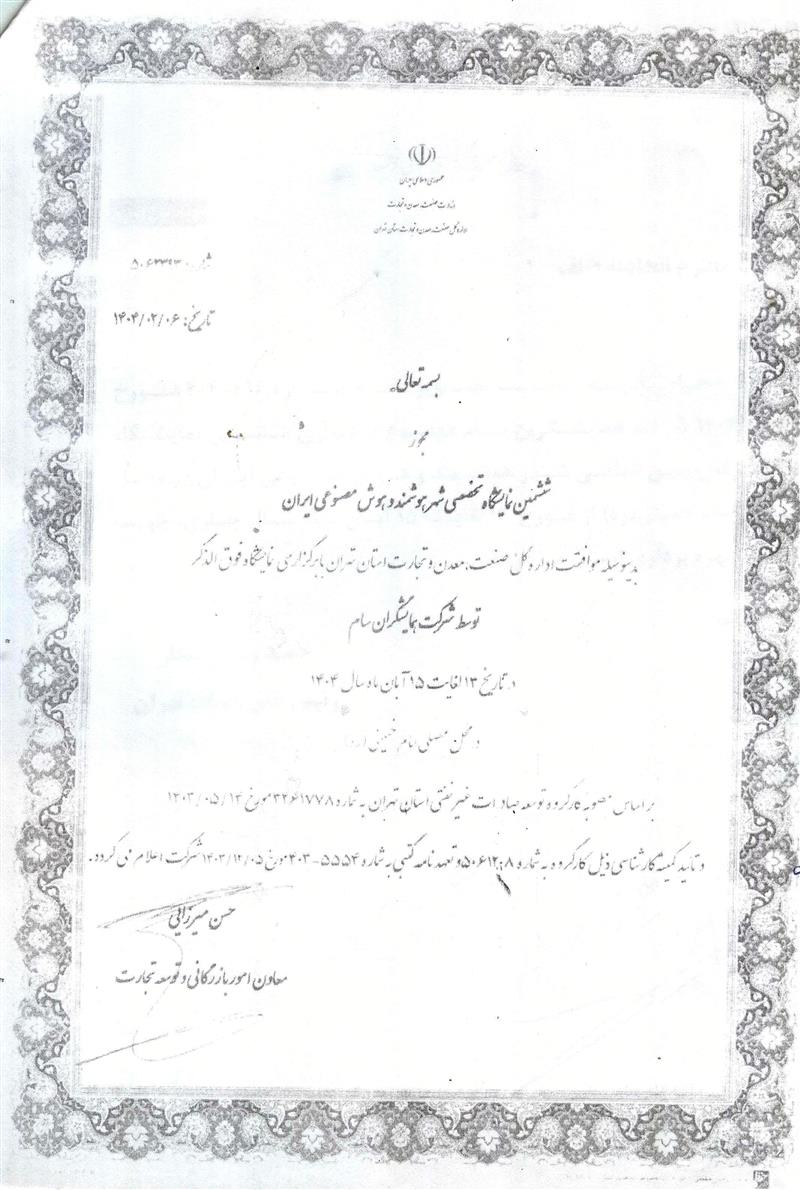 جمهوری اسلامی ایران
وزارت صنعت، معدن و تجارت
اداره کل صنعت، معدن و تجارت استان تهران
شماره: ۵۰۶۲۳۹۳
تاریخ: ۱۴۰۴/۰۲/۰۶
بسمه تعالی
مجوز
ششمین نمایشگاه تخصصی شهر هوشمند و هوش مصنوعی ایران
بدینوسیله موافقت اداره کل صنعت، معدن و تجارت استان تهران با برگزاری نمایشگاه فوق الذکر
توسط شرکت همایشگران سام
در تاریخ ۱۳ لغایت ۱۵ آبان ماه سال ۱۴۰۴
در محل مصلی امام خمینی (ره)
بر اساس مصوبه کارگروه توسعه صادرات غیر نفتی استان تهران به شماره ۳۲۶۱۷۷۸ مورخ ۱۴۰۳/۰۵/۱۴
و تایید کمیته کارشناسی ذیل کارگروه به شماره ۵۰۶۱۲۰۸ و تعهد نامه کتبی به شماره ۵۵۵۴-۴۰۳ مورخ ۱۴۰۳/۱۲/۰۵ شرکت اعلام می گردد.
حسن میرزائی
معاون امور بازرگانی و توسعه تجارت